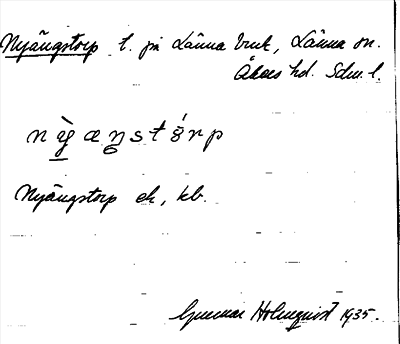 Nyängstorp t. på Länna bruk, Länna sn.
Åkers hd. Södm. l.
n ỳ̠ æ ŋ s t ó̤ r p
Nyängstorp ek, kb.
Gunnar Holmquist 1935.